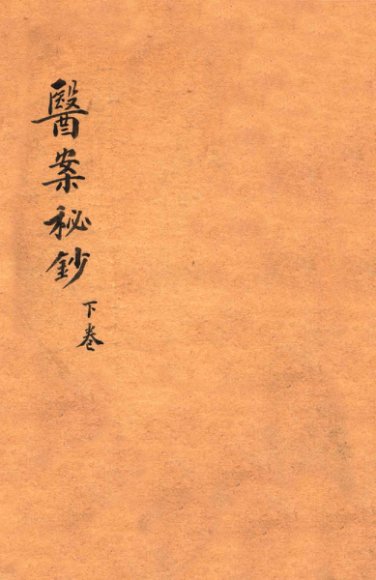 醫案秘鈔
下卷